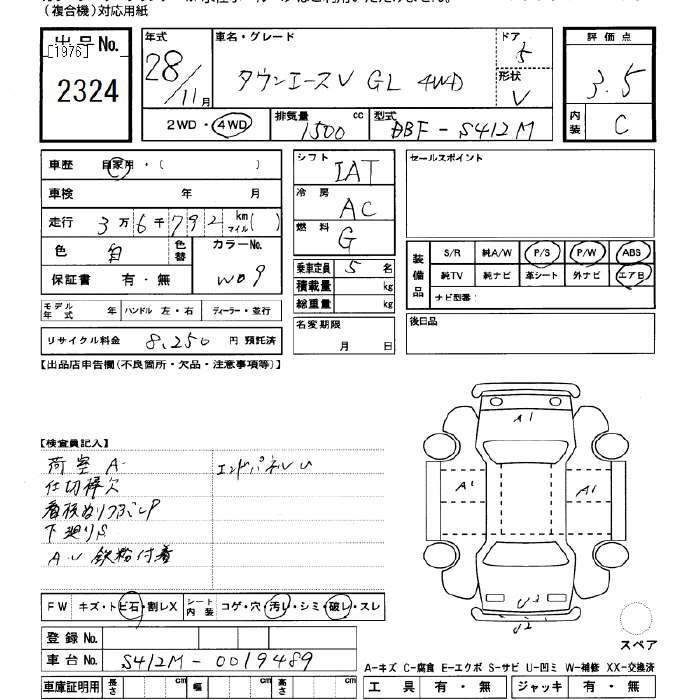 (複合機)対応用紙
出品No.
[1976]
2324
年式
28/11月
車名・グレード
タウンエースV GL 4WD
ドア
5
形状
V
評価点
3.5
内装
C
2WD・4WD
排気量
1500 cc
型式
DBF-S412M
車歴 自家用・( )
車検 年 月
走行 3万6千792 km マイル( )
色 白 色替
カラーNo.
W09
保証書 有・無
モデル年式 年 ハンドル 左・右 ディーラー・並行
リサイクル料金 8,250 円 預託済
シフト
IAT
冷房
AC
燃料
G
乗車定員 5 名
積載量 kg
総重量 kg
名変期限
月 日
セールスポイント
装備品
S/R 純A/W P/S P/W ABS
純TV 純ナビ 革シート 外ナビ エアB
ナビ型番:
後日品
【出品店申告欄(不良箇所・欠品・注意事項等)】
【検査員記入】
荷室 A・
エンドパネルU
仕切棒欠
看板ぬりつぶしP
下廻りS
A・U 鉄粉付着
A1
A1
A1
U3
U2
FW キズ・トビ石・割レX
シート内装 コゲ・穴・汚レ・シミ・破レ・スレ
登録No.
車台No. S412M-0019489
車庫証明用 長さ cm 幅 cm 高さ cm
スペア
A-キズ C-腐食 E-エクボ S-サビ U-凹ミ W-補修 XX-交換済
工具 有・無 ジャッキ 有・無